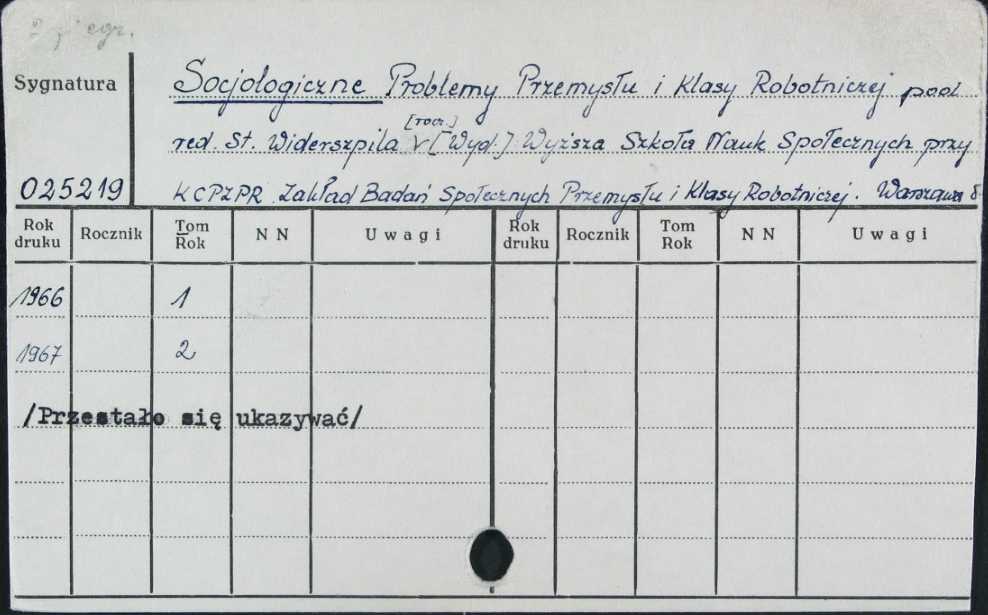 egz.
Sygnatura
Socjologiczne Problemy Przemysłu i Klasy Robotniczej pod
[rocz.]
red. St. Widerszpila [Wyd.] Wyższa Szkoła Nauk Społecznych przy
025219
KCPZPR Zakład Badań Społecznych Przemysłu i Klasy Robotniczej. Warszawa 8
Rok druku Rocznik Tom Rok N N Uwagi Rok druku Rocznik Tom Rok N N Uwagi
1966 1
1967 2
/Przestało się ukazywać/